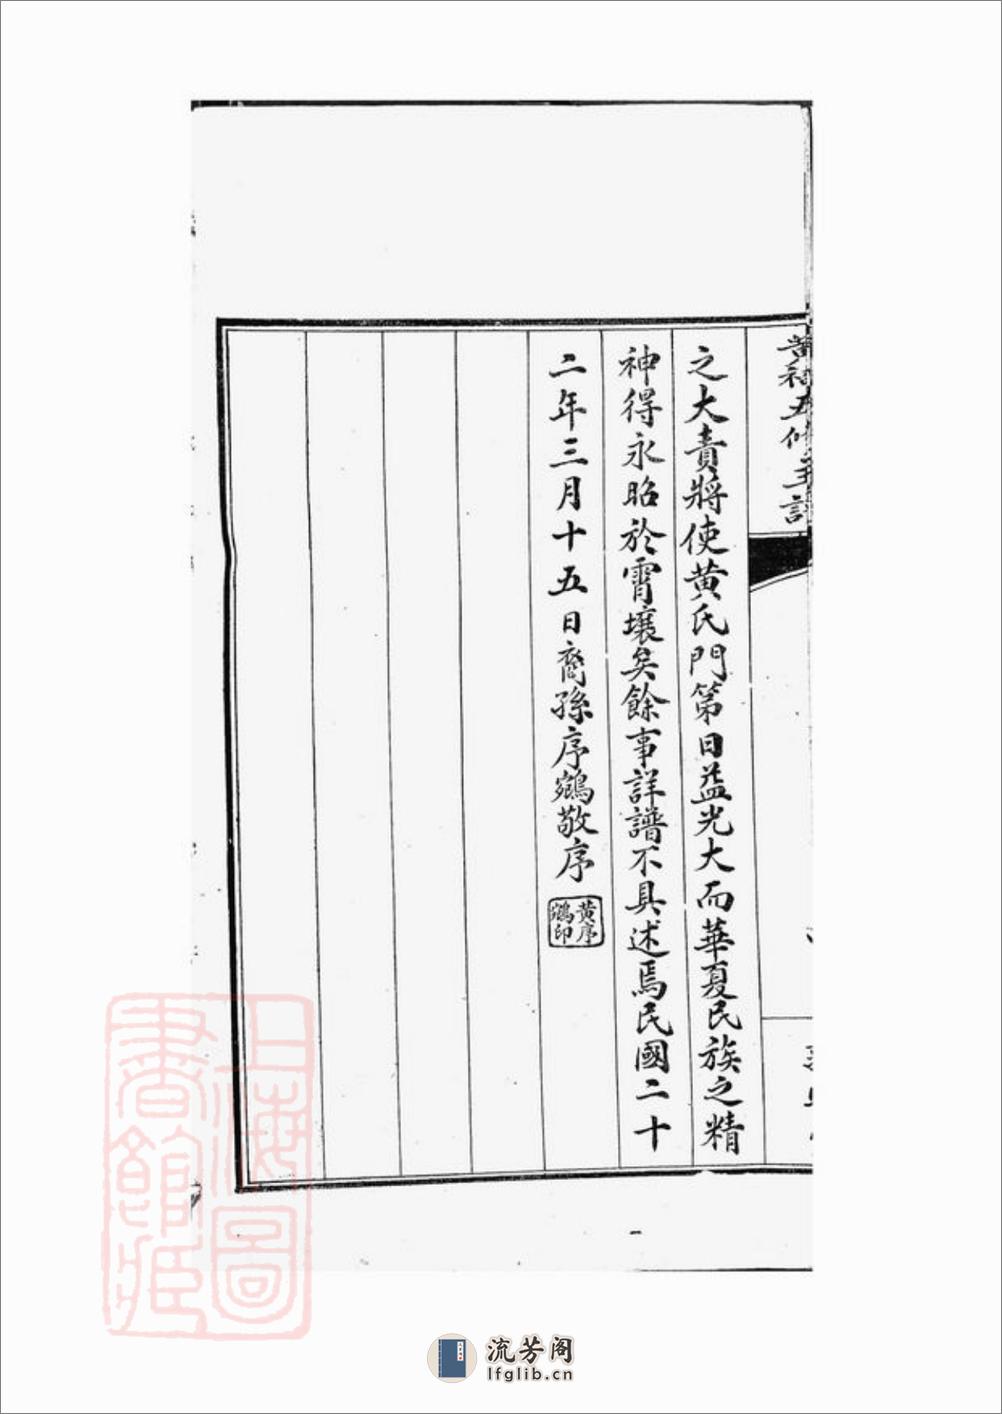 之大責將使黄氏門第日益光大而華夏民族之精
神得永昭於霄壤矣餘事詳譜不具述焉民國二十
二年三月十五日裔孫序鵷敬序
黄序
鵷印
上海圖
書館藏
流芳阁
lfglib.cn